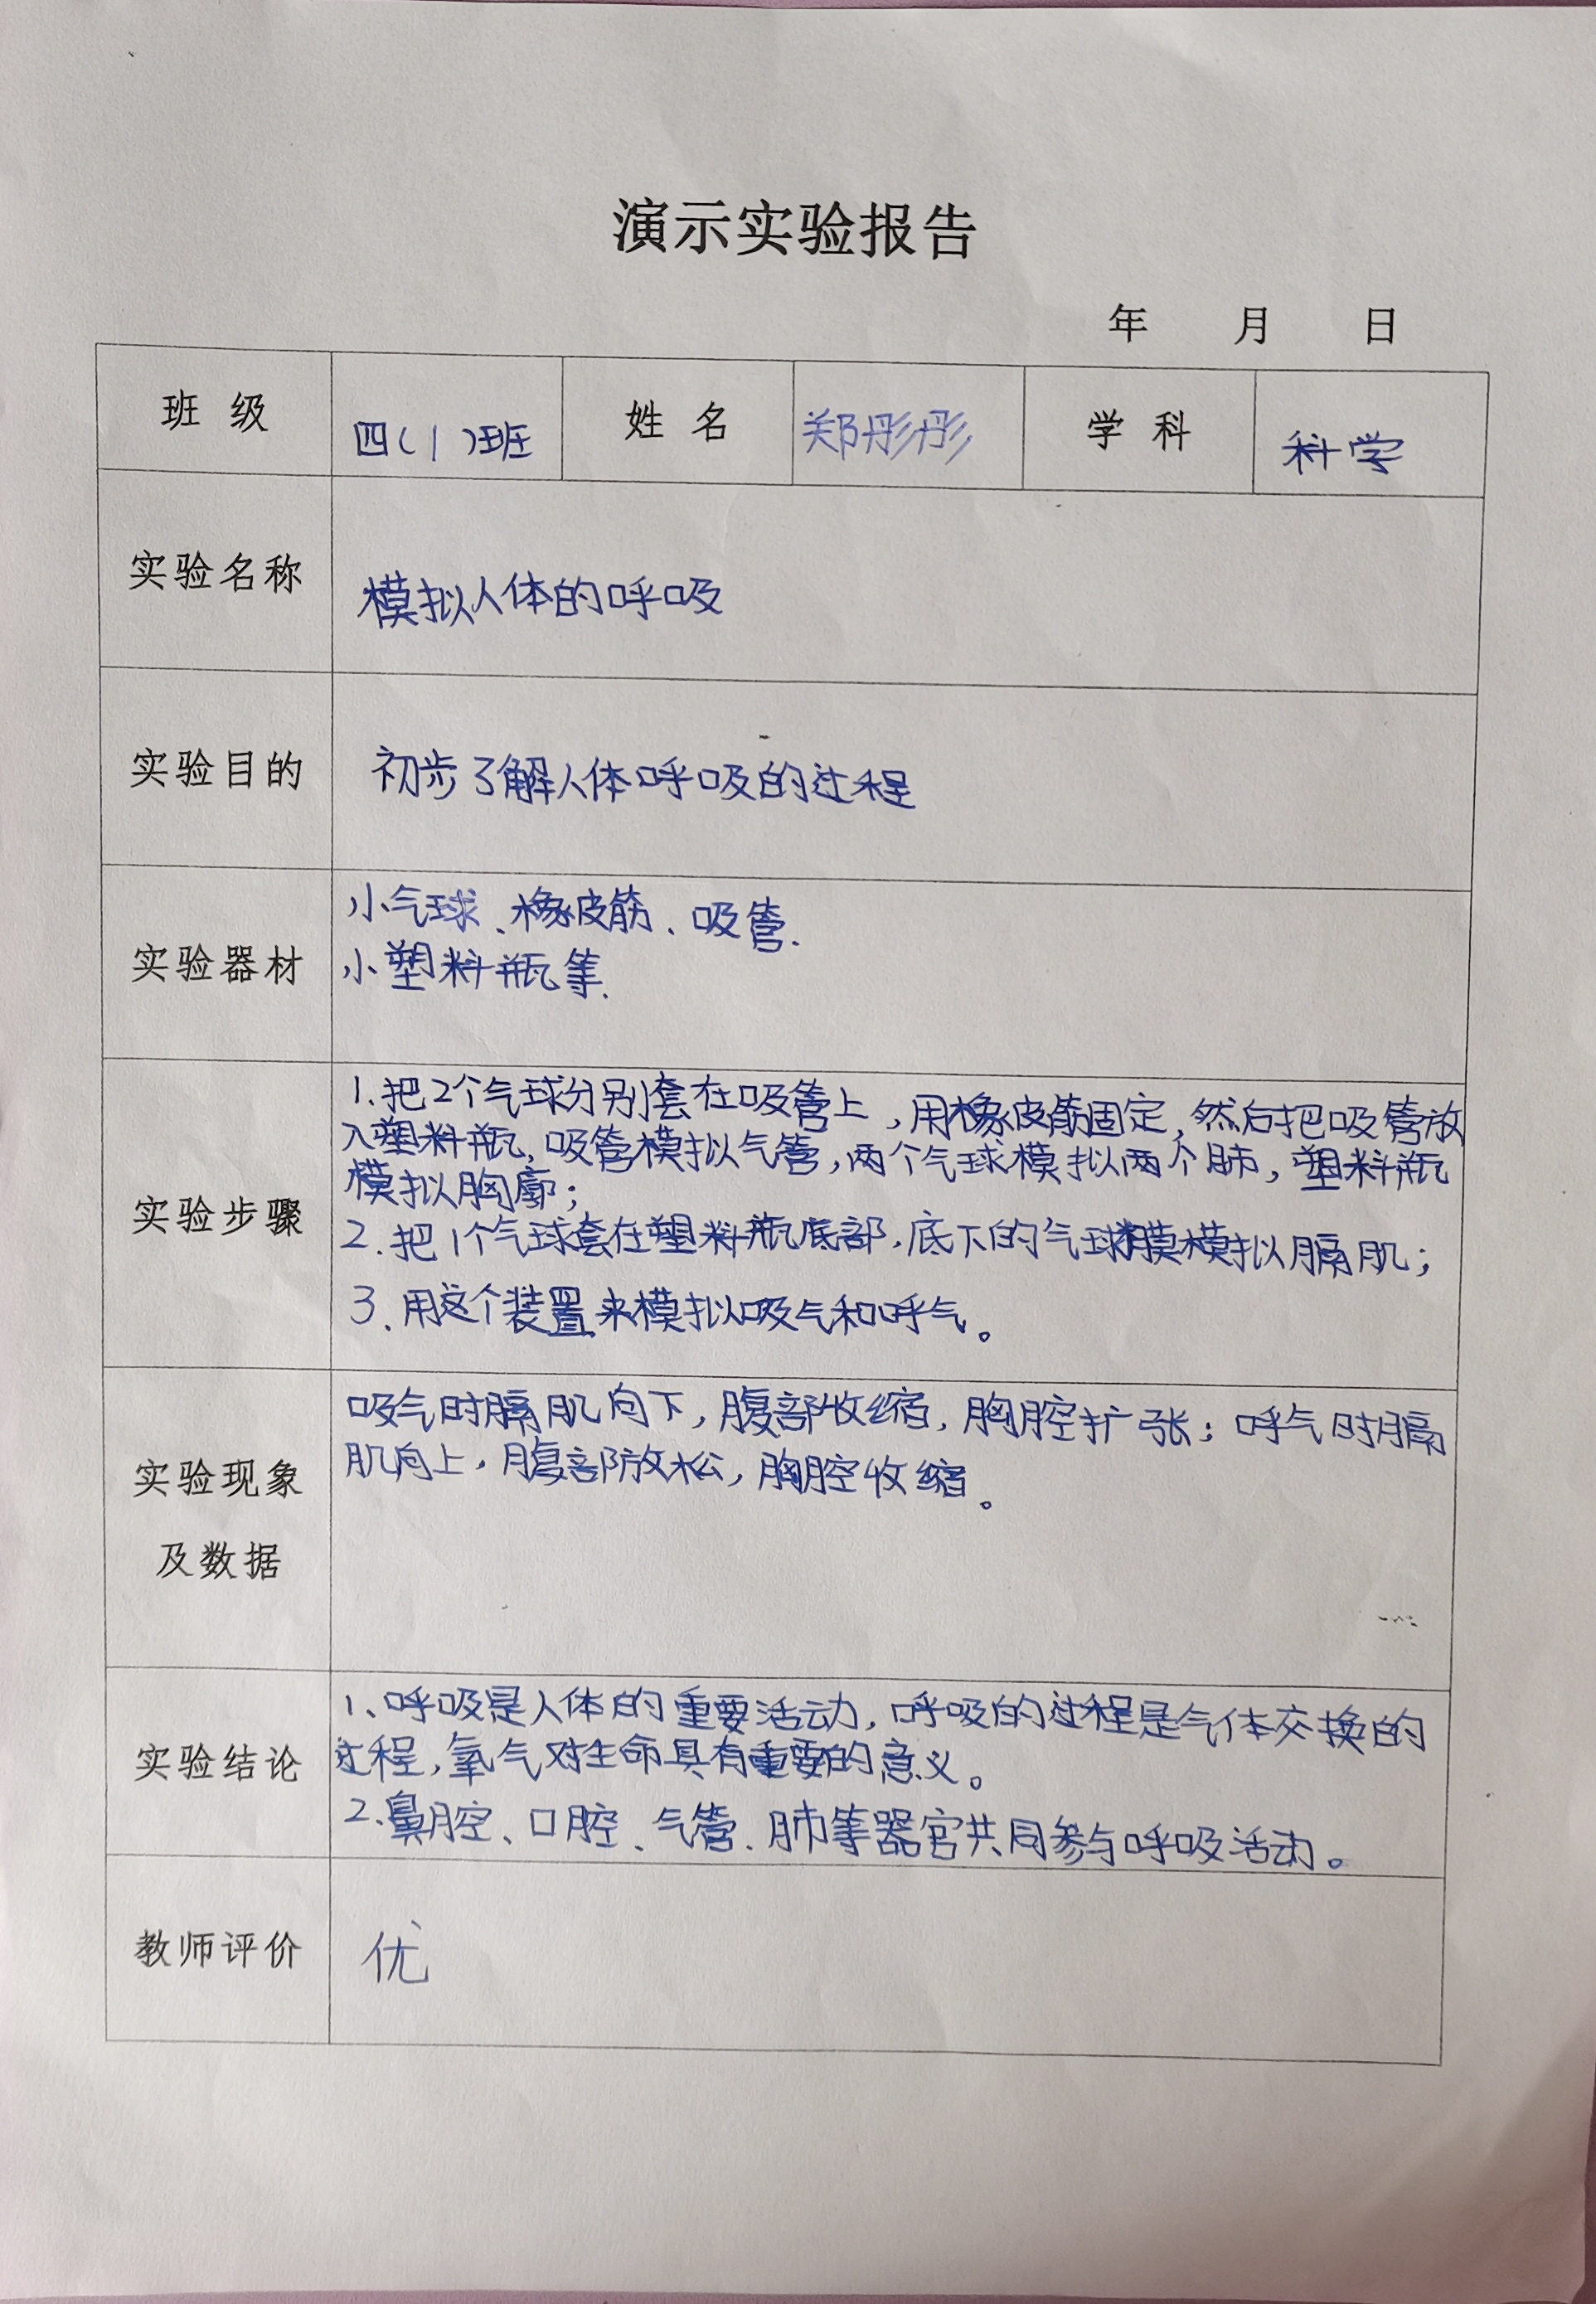 演示实验报告
年 月 日
班级 四(1)班 姓名 郑彤彤 学科 科学
实验名称 模拟人体的呼吸
实验目的 初步了解人体呼吸的过程
实验器材 小气球、橡皮筋、吸管.
小塑料瓶等.
实验步骤
1.把2个气球分别套在吸管上,用橡皮筋固定,然后把吸管放
入塑料瓶,吸管模拟气管,两个气球模拟两个肺,塑料瓶
模拟胸廓;
2.把1个气球套在塑料瓶底部,底下的气球膜模拟膈肌;
3.用这个装置来模拟吸气和呼气。
实验现象
及数据
吸气时膈肌向下,腹部收缩,胸腔扩张;呼气时膈
肌向上,腹部放松,胸腔收缩。
实验结论
1、呼吸是人体的重要活动,呼吸的过程是气体交换的
过程,氧气对生命具有重要的意义。
2.鼻腔、口腔、气管、肺等器官共同参与呼吸活动。
教师评价 优